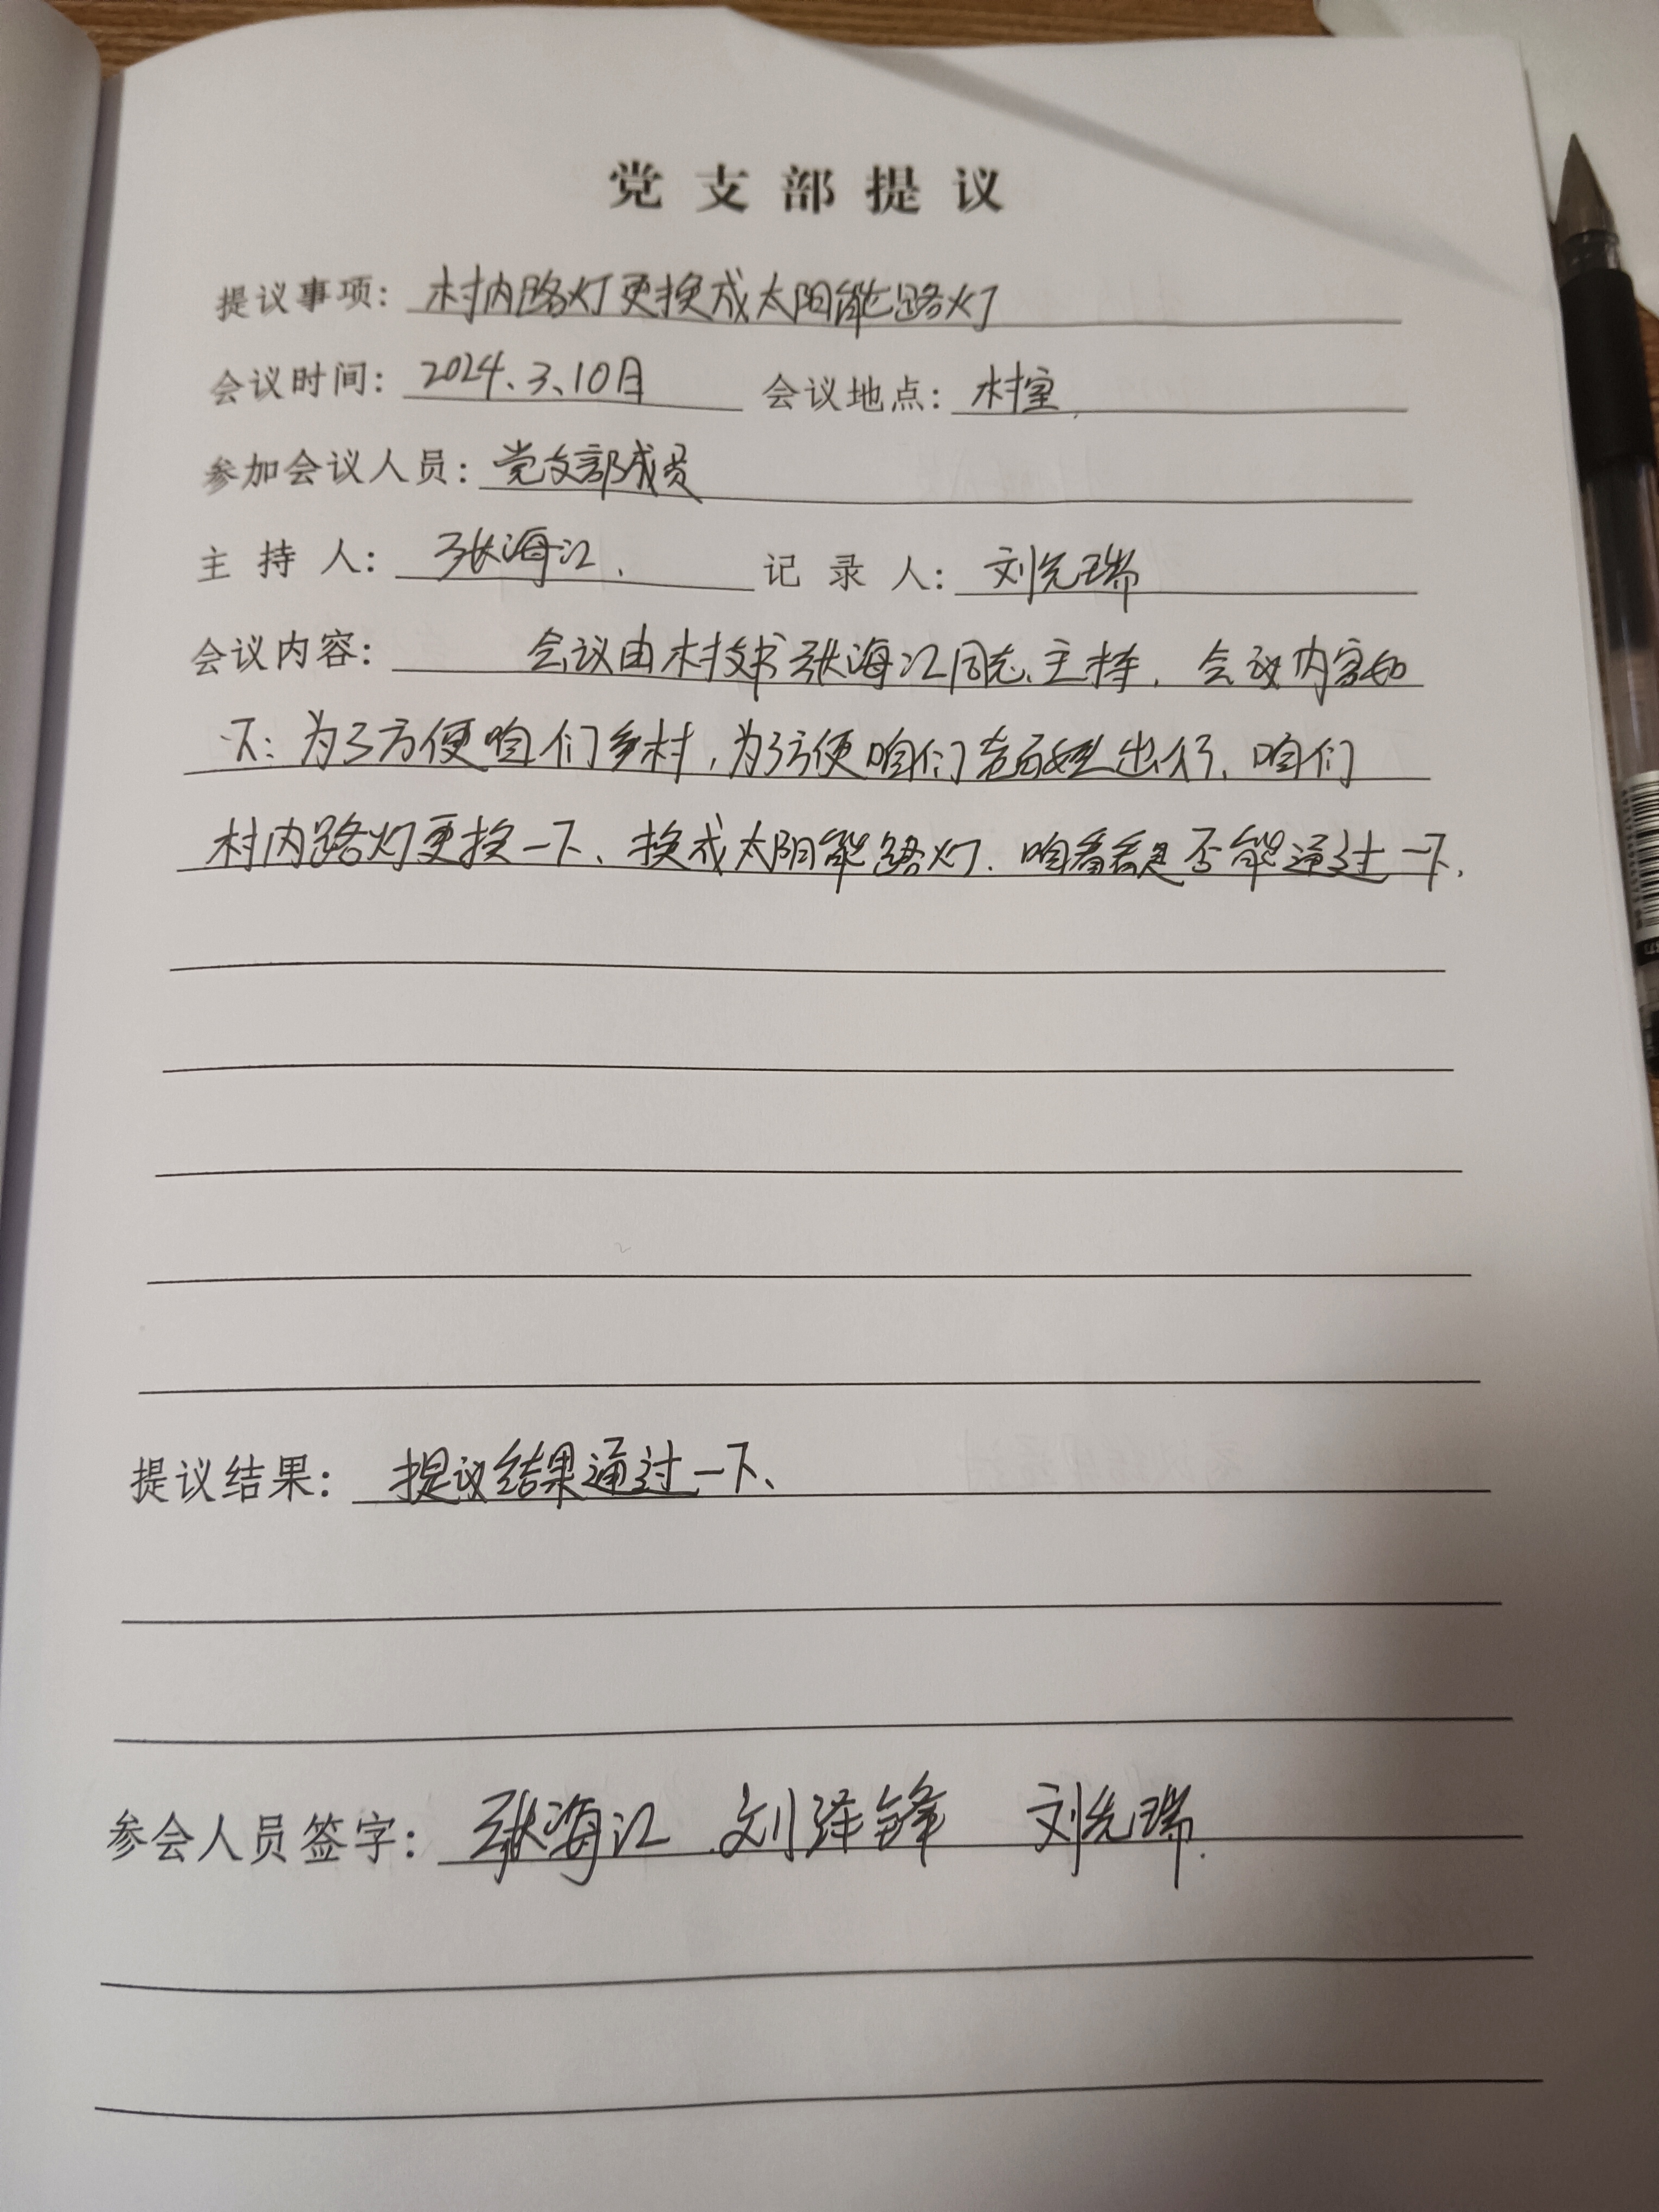 党支部提议
提议事项：村内路灯更换成太阳能路灯
会议时间：2024、3、10日 会议地点：村室
参加会议人员：党支部成员
主持人：张海江、 记录人：刘先瑞
会议内容：会议由村支书张海江同志主持，会议内容如
下：为了方便咱们乡村，为了方便咱们老百姓出行、咱们
村内路灯更换一下、换成太阳能路灯、咱看看是否能通过一下、
提议结果：提议结果通过一下、
参会人员签字：张海江 刘泽锋 刘先瑞.